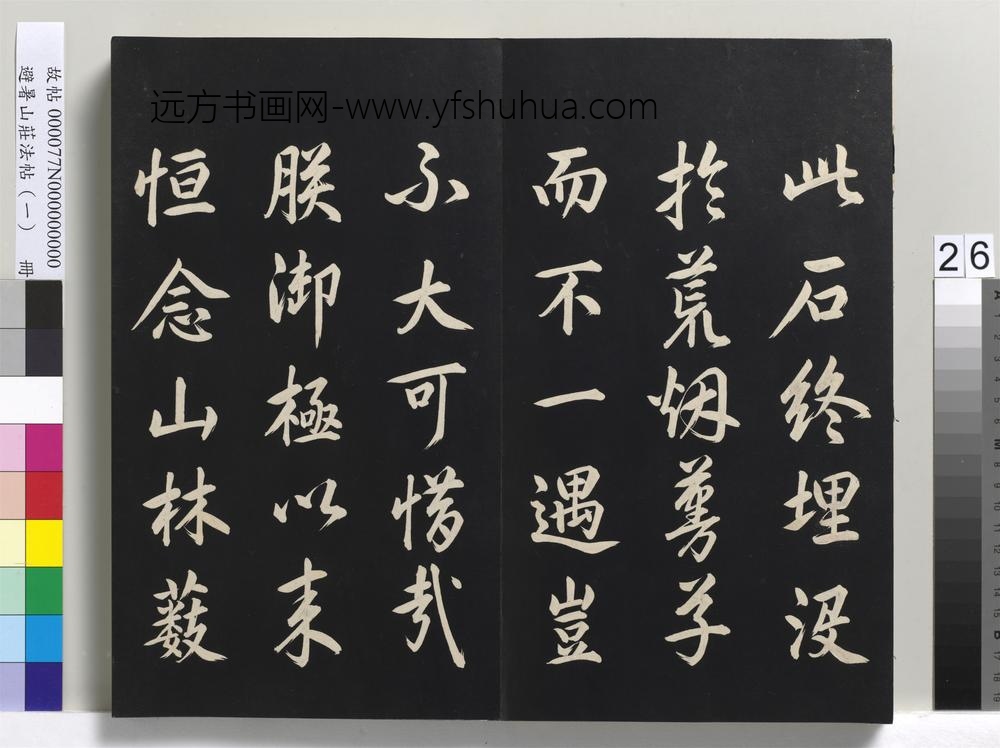 远方书画网-www.yfshuhua.com
此石終埋没
於荒烟蔓草
而不一遇豈
不大可惜哉
朕御極以来
恒念山林藪
故帖 000077N000000000
避暑山莊法帖(一) 冊
26